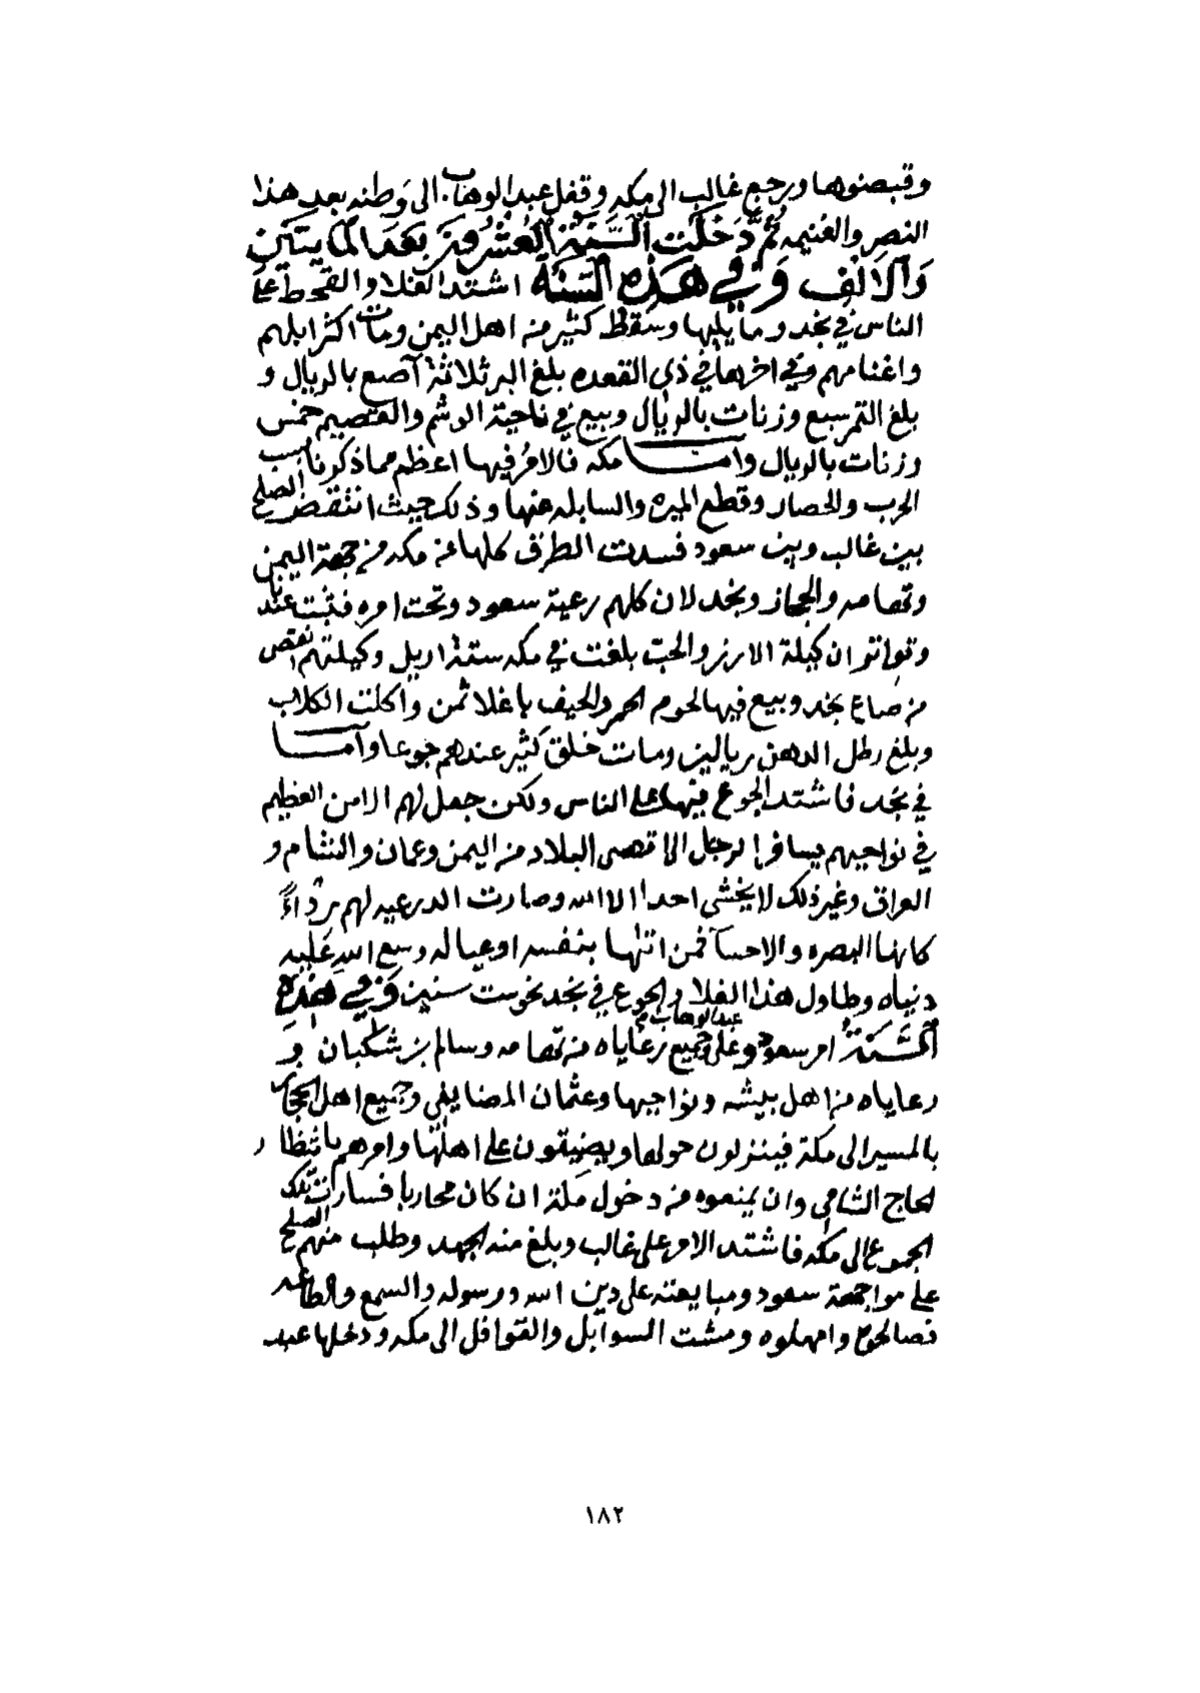 وقبضوها ورجع غالب الى مكه وقفل عبد الوهاب الى وطنه بعد هذا
النصر والغنيمه ثُمَّ دَخَلَت السَّنَةُ العُشْرُونَ بَعْدَ المَايتَيْن
وَالاَلْف وَفي هَذِهِ السَّنَةُ اشتد الغلا والقحط على
الناس في نجد وما يليها وسقط كثير من اهل اليمن ومات اكثر ابلهم
واغنامهم وفي اخرها في ذي القعده بلغ البر ثلاثة آصع بالريال و
بلغ التمر سبع وزنات بالريال وبيع في ناحية الوشم والقصيم خمس
وزنات بالريال وامـــا مكه فالامرُ فيها اعظم مما ذكرنا بسبب
الحرب والحصار وقطع الميره والسابله عنها وذلك حيث انتقض الصلح
بين غالب وبين سعود فسدت الطرق كلها عن مكه من جهة اليمن
وتهامه والحجاز ونجد لان كلهم رعية سعود وتحت امره فثبت عندنا
وتواتر ان كيلة الارز والحب بلغت في مكه ستة اريل وكيلتهم انقص
من صاع نجد وبيع فيها لحوم الحمر والجيف باغلا ثمن وأكلت الكلاب
وبلغ رطل الدهن ريالين ومات خلق كثير عندهم جوعا وآمـــا
في نجد فاشتد الجوع فيها على الناس ولكن جعل لهم الامن العظيم
في نواحيهم يسافر الرجل الا قصى البلاد من اليمن وعمان والشام و
العراق وغير ذلك لا يخشى احدا الا الله وصارت الدرعيه لهم رِدْاءً
كانها البصره والاحسآ فمن اتاها بنفسه او عياله وسع الله عَلَيه
دنياه وطاول هذا الغلا والجوع في نجد نحو ست سنين وَفي هَذِه
السَّنَةُ امر سعود على عبد الوهاب وجميع رعاياه من تهامه وسالم بن شكبان و
رعاياه من اهل بيشه ونواحيها وعثمان المضايفي وجميع اهل الحجاز
بالمسير الى مكة فينزلون حولها ويضيقون على اهلها وامرهم بانتظار
لحاج الشامي وان يمنعوه من دخول مكة ان كان محاربا فسارات تلك
الجموع الى مكه فاشتد الامر على غالب وبلغ منه الجهد وطلب منهم الصلح
على مواجهة سعود ومبايعته على دين الله ورسوله والسمع والطاعه
فصالحوه وامهلوه ومشت السوابل والقوافل الى مكه ودخلها عبد
١٨٢